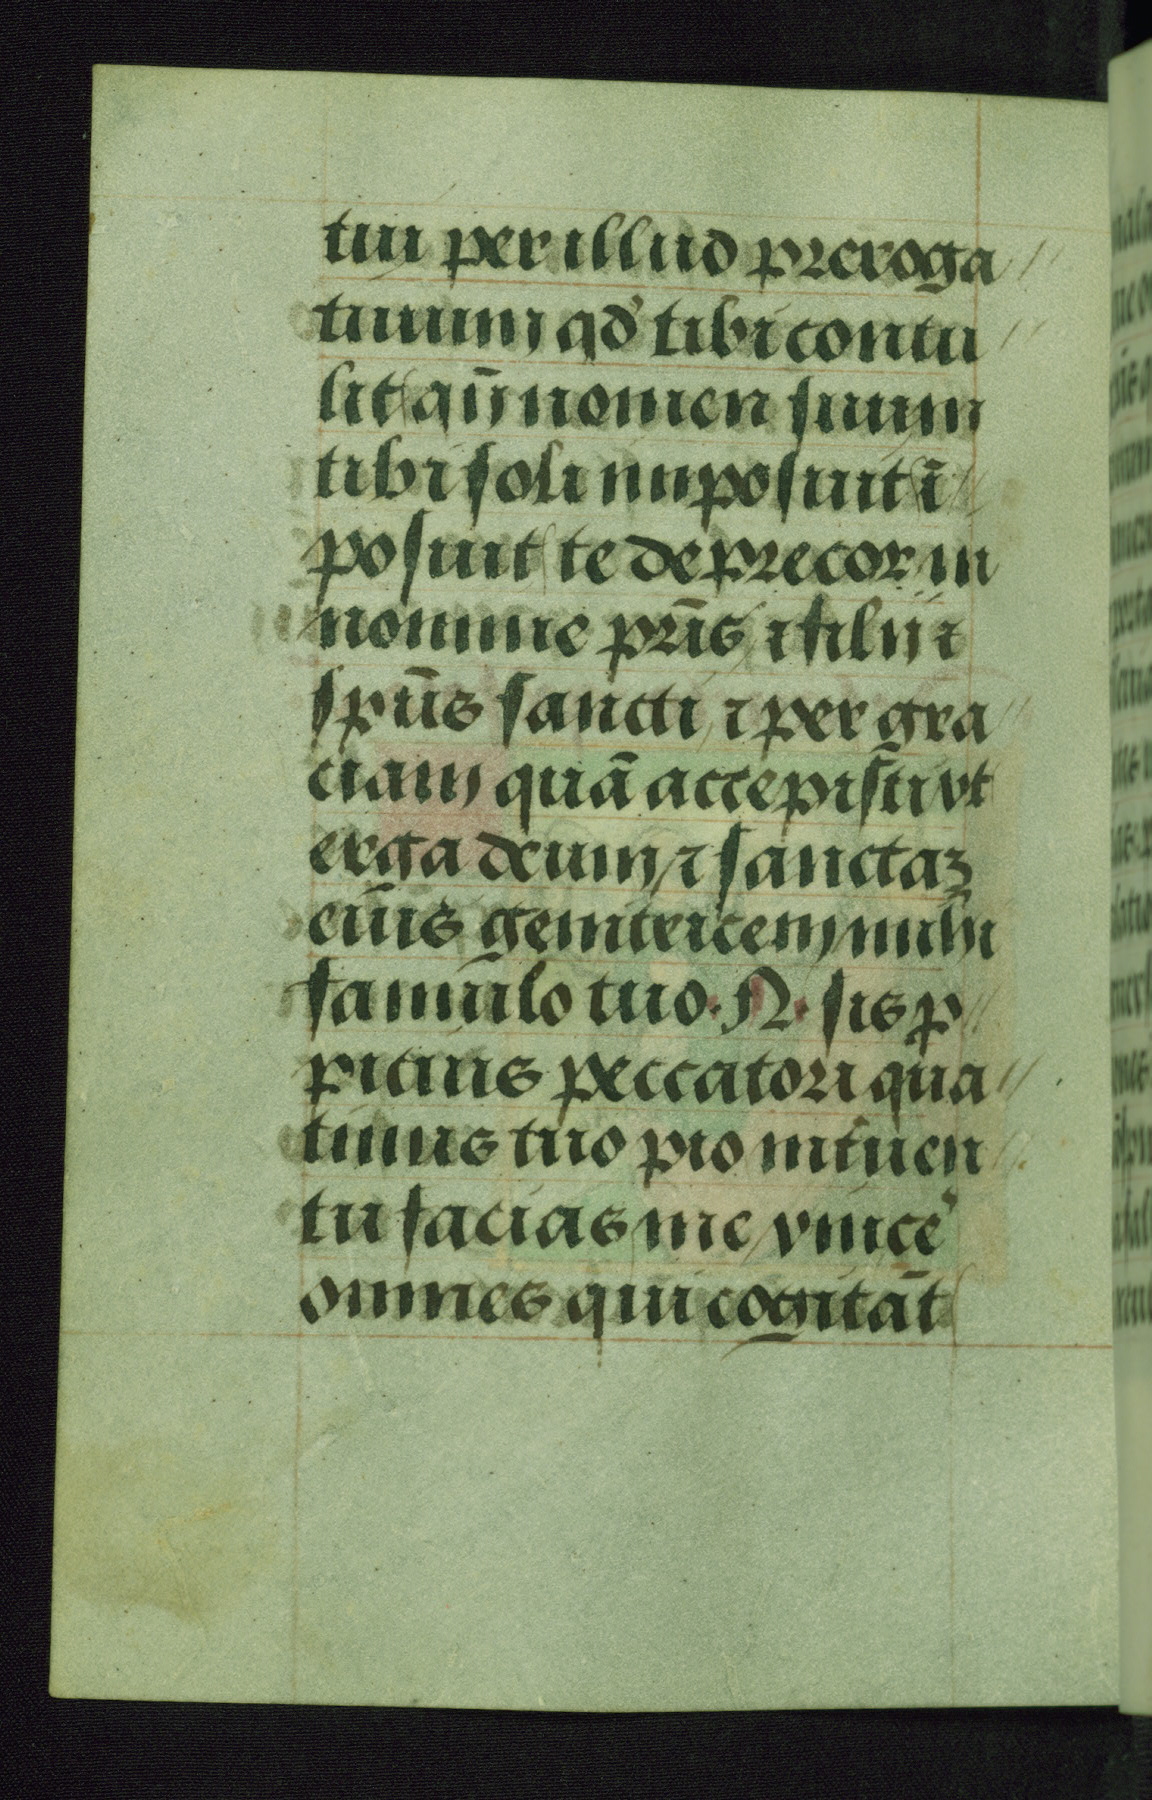 tui per illud preroga
tiuum qd' tibi contu
lit qn̄ nomen suum
tibi soli inposuit ī
posuit te deprecor in
nomine pr̄is ⁊ filii ⁊
sp̄us sancti ⁊ per gra
ciam quā accepisti vt
erga deum ⁊ sanctaꝫ
eius genitricem mihi
famulo tuo · N · sis ꝓ
picius peccatori qua
tinus tuo pio int̄uen
tu facias me vincē
omnes qui cogitāt